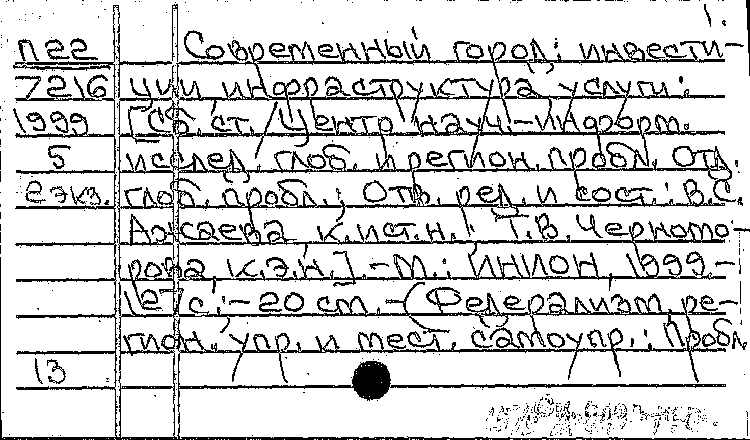 1.
П22 Современный город: инвести-
7216 ции инфраструктура услуги:
1999 [Сб. ст. / Центр науч.-информ.
5 исслед. глоб. и регион. пробл. Отд.
2 экз. глоб. пробл.; Отв. ред. и сост.: В.С.
Ажаева к.ист.н., Т.В. Черномо-
рова, к.э.н.]. -М.: ИНИОН, 1999.-
127 с.; - 20 см. - (Федерализм, ре-
гион. упр. и мест. самоупр.: Пробл.
13